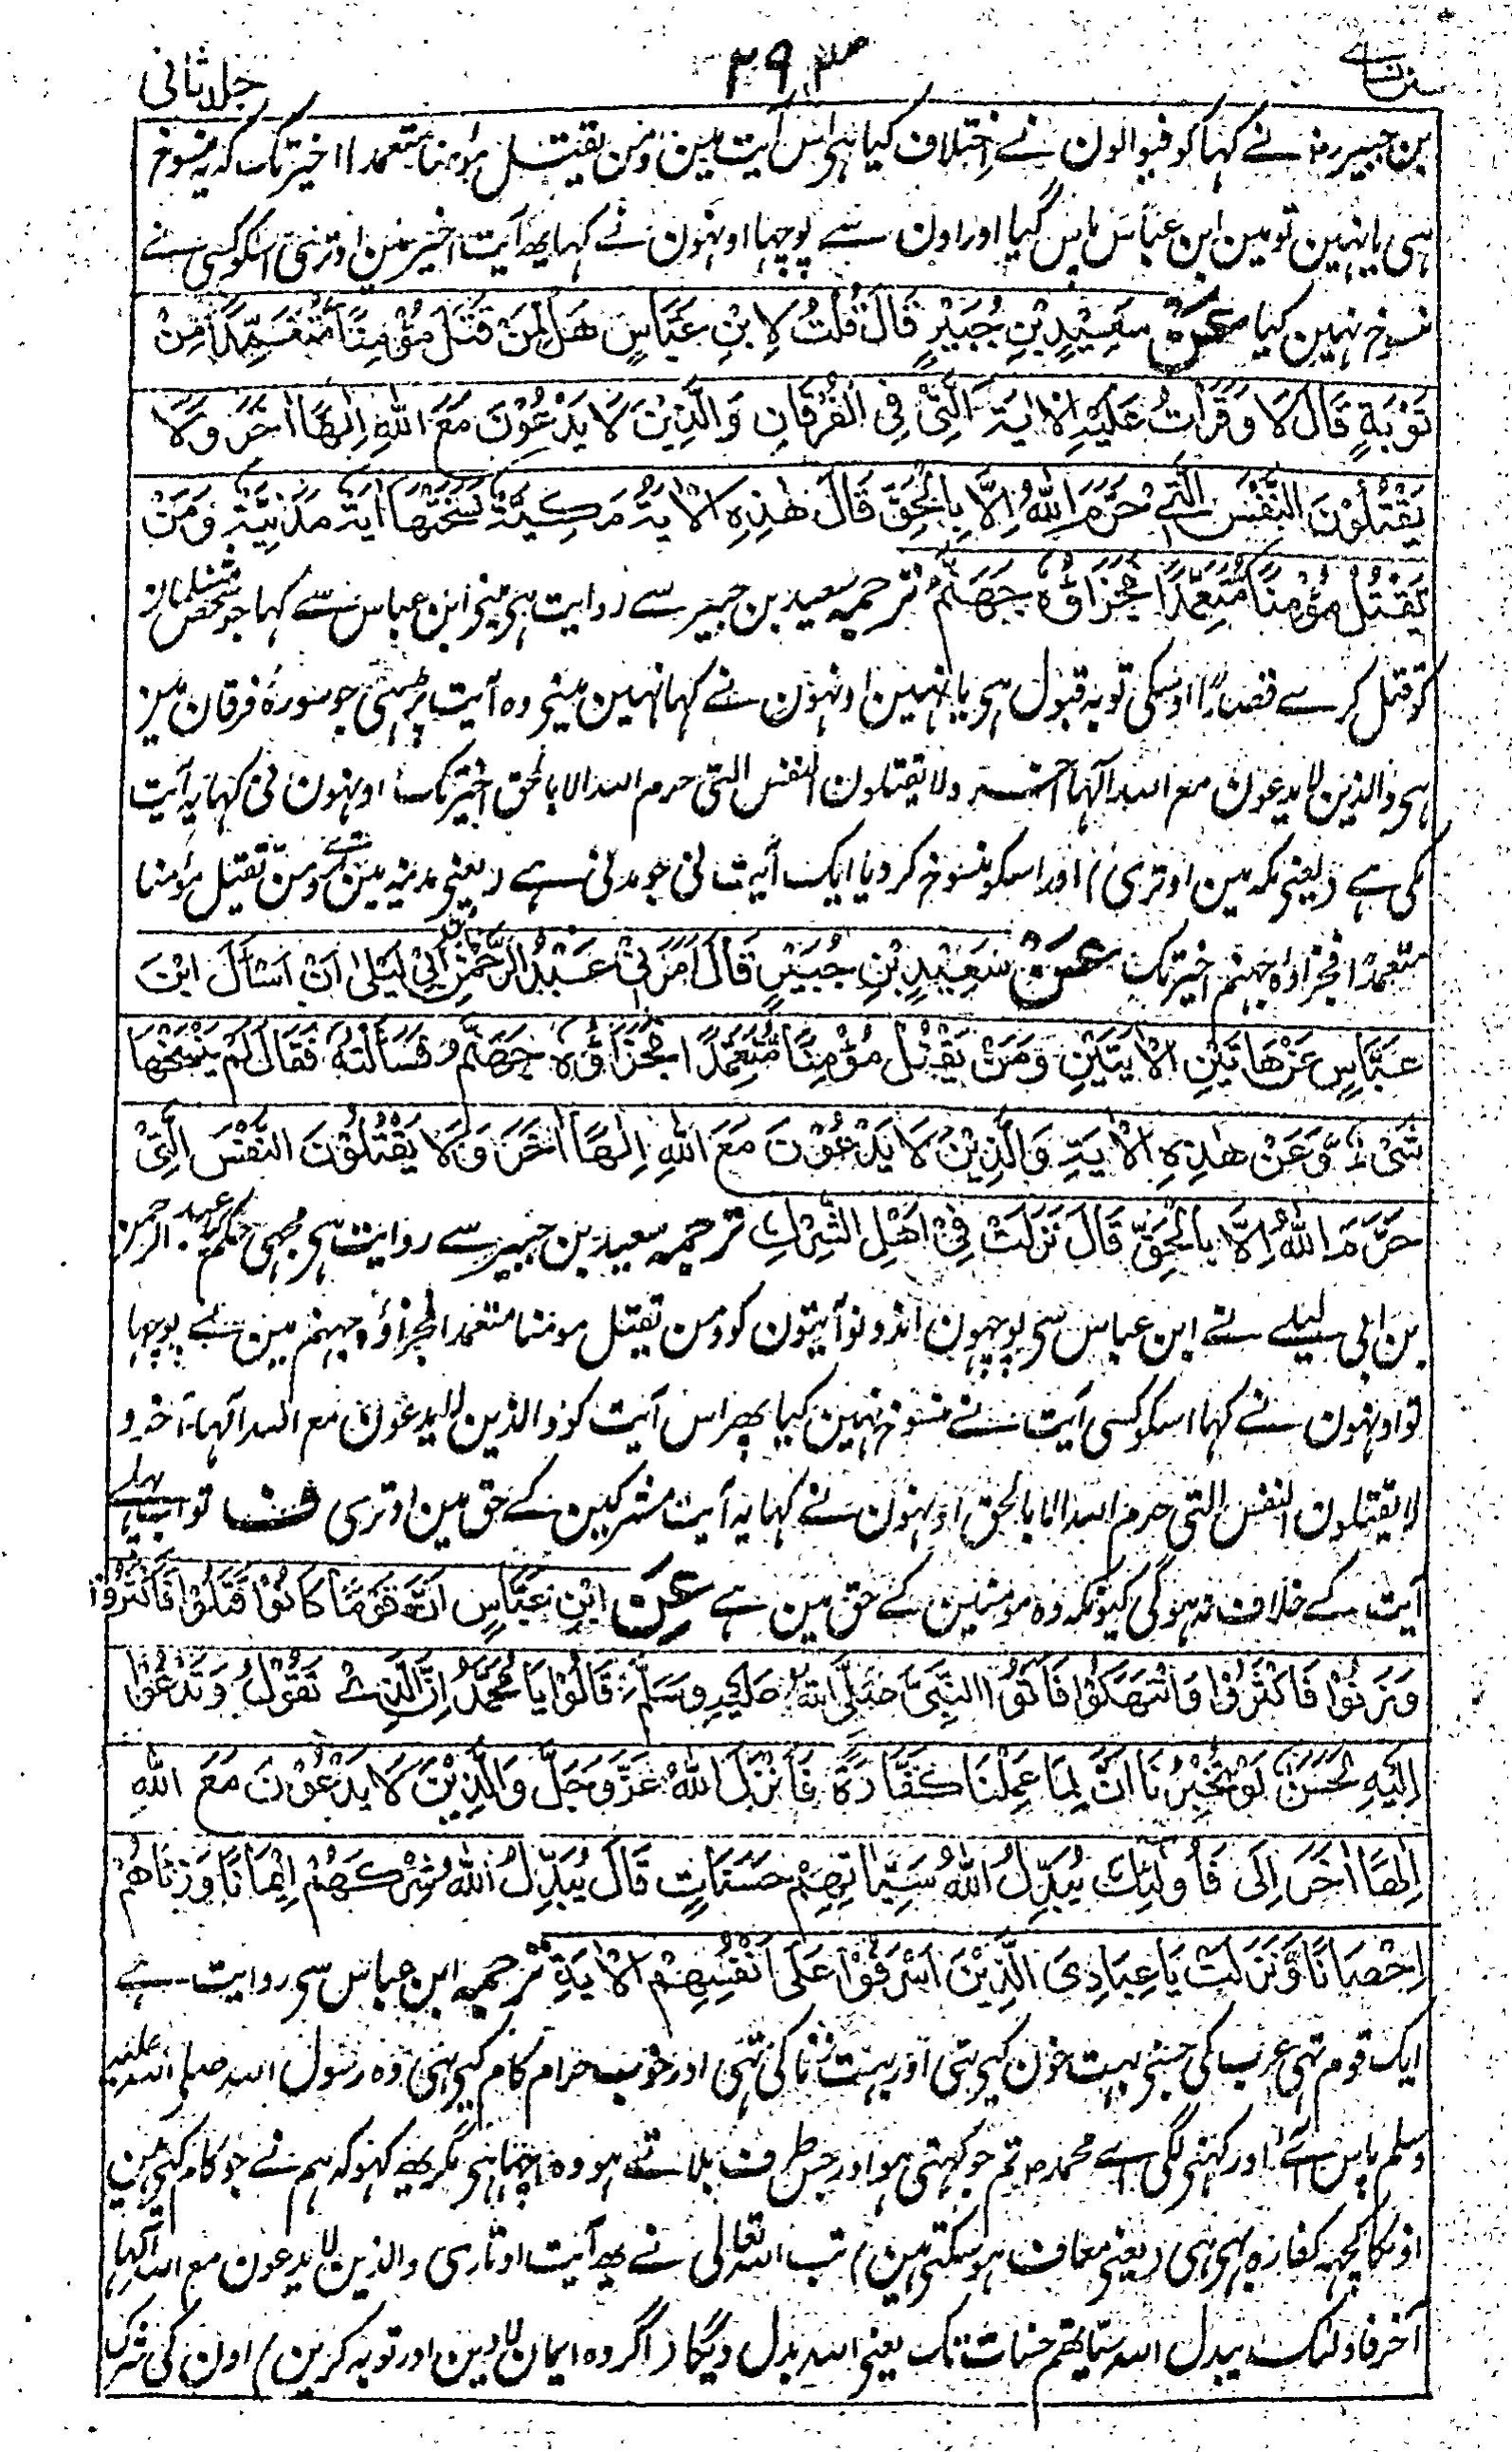 سنن نسائے
۲۹۳
جلد ثانی
بن جبیر رضہ نے کہا کوفہ والون نے اختلاف کیا ہی اس آیت مین ومن یقتل مؤمنا متعمدا اخیر تک کہ یہ منسوخ
ہی یا نہین تو مین ابن عباس پاس گیا اور اون سے پوچہا اونہون نے کہا یہ آیت اخیر مین اوتری اسکو کسی نے
منسوخ نہین کیا عَنْ سَعِيْدِ بْنِ جُبَيْرٍ قَالَ قُلْتُ لِابْنِ عَبَّاسٍ هَلْ لِمَنْ قَتَلَ مُؤْمِنًا مُتَعَمِّدًا مِنْ
تَوْبَةٍ قَالَ لَا وَقَرَأْتُ عَلَيْهِ الْاٰيَةَ الَّتِيْ فِي الْفُرْقَانِ وَالَّذِيْنَ لَا يَدْعُوْنَ مَعَ اللهِ اِلٰهًا اٰخَرَ وَلَا
يَقْتُلُوْنَ النَّفْسَ الَّتِيْ حَرَّمَ اللهُ اِلَّا بِالْحَقِّ قَالَ هٰذِهِ الْاٰيَةُ مَكِّيَّةٌ نَسَخَتْهَا اٰيَةٌ مَدَنِيَّةٌ وَمَنْ
يَقْتُلْ مُؤْمِنًا مُتَعَمِّدًا فَجَزَاؤُهٗ جَهَنَّمُ ترجمہ سعید بن جبیر سے روایت ہی مینی ابن عباس سے کہا جو شخص مسلمان
کو قتل کرے قصداً اوسکی توبہ قبول ہی یا نہین اونہون نے کہا نہین مینی وہ آیت پڑہی جو سورۂ فرقان مین
ہی والذین لا یدعون مع اللہ الہا آخر ولا یقتلون النفس التی حرم اللہ الا بالحق اخیر تک اونہون نی کہا یہ آیت
مکی ہے (یعنی مکہ مین اوتری) اور اسکو منسوخ کر دیا ایک آیت نی جو مدنی ہے (یعنی مدینہ مین ومن یقتل مؤمنا
متعمدًا فجزاؤہ جہنم اخیر تک عَنْ سَعِيْدِ بْنِ جُبَيْرٍ قَالَ اَمَرَنِيْ عَبْدُ الرَّحْمٰنِ بْنُ اَبِيْ لَيْلٰى اَنْ اَسْاَلَ ابْنَ
عَبَّاسٍ عَنْ هَاتَيْنِ الْاٰيَتَيْنِ وَمَنْ يَقْتُلْ مُؤْمِنًا مُتَعَمِّدًا فَجَزَاؤُهٗ جَهَنَّمُ فَسَاَلْتُهٗ فَقَالَ لَمْ يَنْسَخْهَا
شَيْءٌ وَّعَنْ هٰذِهِ الْاٰيَةِ وَالَّذِيْنَ لَا يَدْعُوْنَ مَعَ اللهِ اِلٰهًا اٰخَرَ وَلَا يَقْتُلُوْنَ النَّفْسَ الَّتِيْ
حَرَّمَ اللهُ اِلَّا بِالْحَقِّ قَالَ نَزَلَتْ فِيْ اَهْلِ الشِّرْكِ ترجمہ سعید بن جبیر سے روایت ہی مجہی حکم کیا عبد الرحمن
بن ابی لیلے نے ابن عباس سی پوچہون ان دونو آیتون کو ومن یقتل مومنا متعمدا فجزاؤہ جہنم مین نے پوچہا
تو اونہون نے کہا اسکو کسی آیت نے منسوخ نہین کیا پہر اس آیت کو والذین لا یدعون مع اللہ الہا آخر و
لا یقتلون النفس التی حرم اللہ الا بالحق اونہون نے کہا یہ آیت مشرکین کے حق مین اوتری ف تو یہ پہلے
آیت کے خلاف نہ ہوگی کیونکہ وہ مومنین کے حق مین ہے عَنِ ابْنِ عَبَّاسٍ اَنَّ قَوْمًا كَانُوْا قَتَلُوْا فَاَكْثَرُوْا
وَزَنَوْا فَاَكْثَرُوْا وَانْتَهَكُوْا فَاَتَوُا النَّبِيَّ صَلَّى اللهُ عَلَيْهِ وَسَلَّمَ قَالُوْا يَا مُحَمَّدُ اِنَّ الَّذِيْ تَقُوْلُ وَتَدْعُوْا
اِلَيْهِ لَحَسَنٌ لَوْ تُخْبِرُنَا اَنَّ لِمَا عَمِلْنَا كَفَّارَةً فَاَنْزَلَ اللهُ عَزَّ وَجَلَّ وَالَّذِيْنَ لَا يَدْعُوْنَ مَعَ اللهِ
اِلٰهًا اٰخَرَ اِلٰى فَاُولٰئِكَ يُبَدِّلُ اللهُ سَيِّاٰتِهِمْ حَسَنَاتٍ قَالَ يُبَدِّلُ اللهُ شِرْكَهُمْ اِيْمَانًا وَزِنَاهُمْ
اِحْصَانًا وَّنَزَلَتْ يَا عِبَادِيَ الَّذِيْنَ اَسْرَفُوْا عَلٰى اَنْفُسِهِمْ الْاٰيَةَ ترجمہ ابن عباس سی روایت ہے
ایک قوم تہی عرب کی جسنی بہت خون کیی تہی اور بہت زنا کی تہی اور خوب حرام کام کیی تہی وہ رسول اللہ صلی اللہ علیہ
وسلم پاس آئے اور کہنی لگی اے محمد صہ تم جو کہتی ہو اور جس طرف بلاتے ہو وہ اچہا ہی مگر یہ کہو کہ ہم نے جو کام کئی ہین
اونکا کچہہ کفارہ بہی ہی (یعنی معاف ہو سکتی ہین) تب اللہ تعالی نے یہ آیت اوتاری والذین لا یدعون مع اللہ الہا
آخر فاولئک یبدل اللہ سیأتہم حسنات تک یعنی اللہ بدل دیگا (اگر وہ ایمان لاوین اور توبہ کرین) اون کی شرک